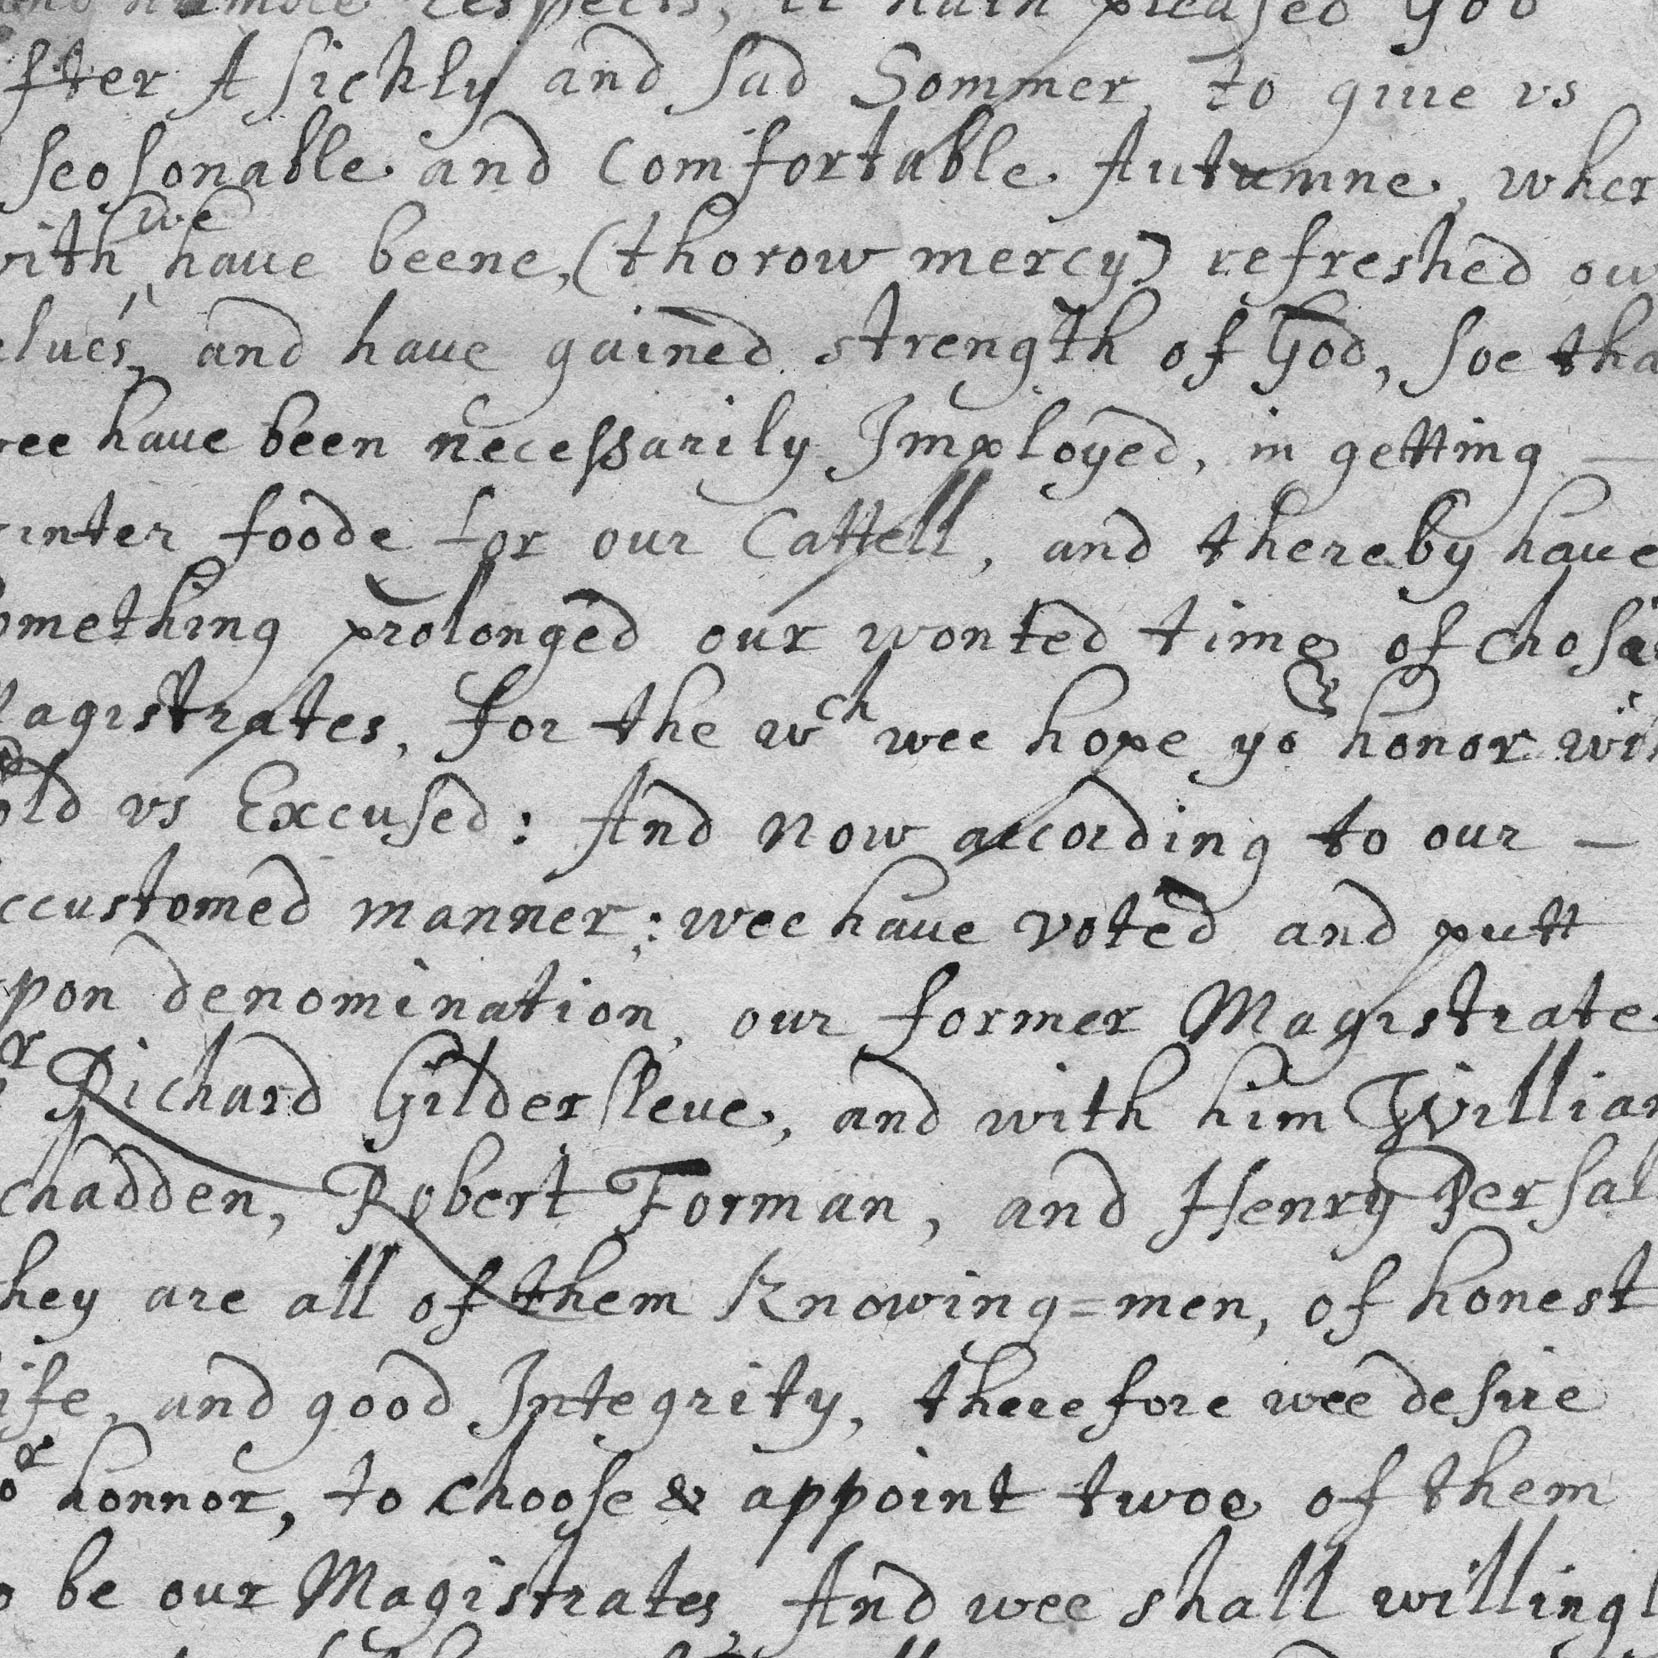 and humble respects, it hath pleased God
fter A sickly and sad Sommer, to giue vs
seosonable and Comfortable Autumne, wher
with we haue beene, (thorow mercy) refreshed ow
elues, and haue gained strength of God, soe tha
ee haue been necessarily Imployed, in getting —
inter foode for our Cattell, and thereby haue
omething prolonged our wonted time of chose
agistrates, for the wch wee hope yor honor wil
old vs Excused: And now acording to our —
ccustomed manner; wee haue voted and putt
pon denomination, our former Magistrate
r Richard Gildersleue, and with him Willia
chadden, Robert Forman, and Henry Persal
hey are all of them Knowing=men, of honest
ife, and good Integrity, therefore wee desire
or honnor, to choose & appoint twoe of them
o be our Magistrates, And wee shall willingl